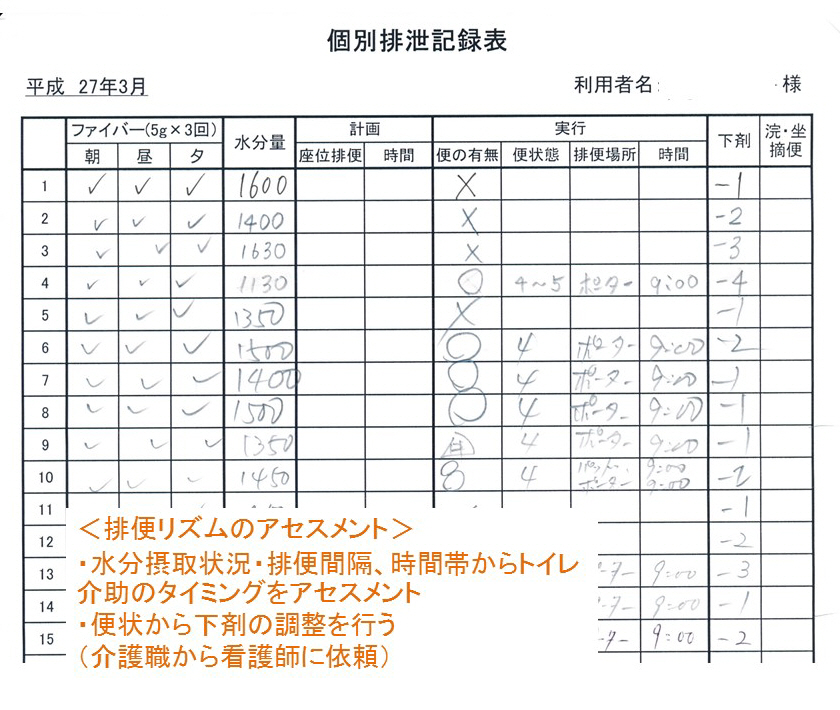 個別排泄記録表
平成 27年3月 利用者名: 様
ファイバー(5g×3回) 水分量 計画 実行 下剤 浣・坐 摘便
朝 昼 夕 座位排便 時間 便の有無 便状態 排便場所 時間
1 ✓ ✓ ✓ 1600 × -1
2 ✓ ✓ ✓ 1400 × -2
3 ✓ ✓ ✓ 1630 × -3
4 ✓ ✓ ✓ 1130 ○ 4~5 ポーター 9:00 -4
5 ✓ ✓ ✓ 1350 × -1
6 ✓ ✓ ✓ 1500 ○ 4 ポーター 9:00 -2
7 ✓ ✓ ✓ 1400 ○ 4 ポーター 9:00 -1
8 ✓ ✓ ✓ 1500 ○ 4 ポーター 9:00 -1
9 ✓ ✓ ✓ 1350 4 ポーター 9:00 -1
10 ✓ ✓ ✓ 1450 4 ポーター 9:00 9:00 -2
11 -1
12 -2
13 ーター 9:00 -3
14 ーター 9:00 -1
15 ーター 9:00 -2
<排便リズムのアセスメント>
・水分摂取状況・排便間隔、時間帯からトイレ
介助のタイミングをアセスメント
・便状から下剤の調整を行う
(介護職から看護師に依頼)